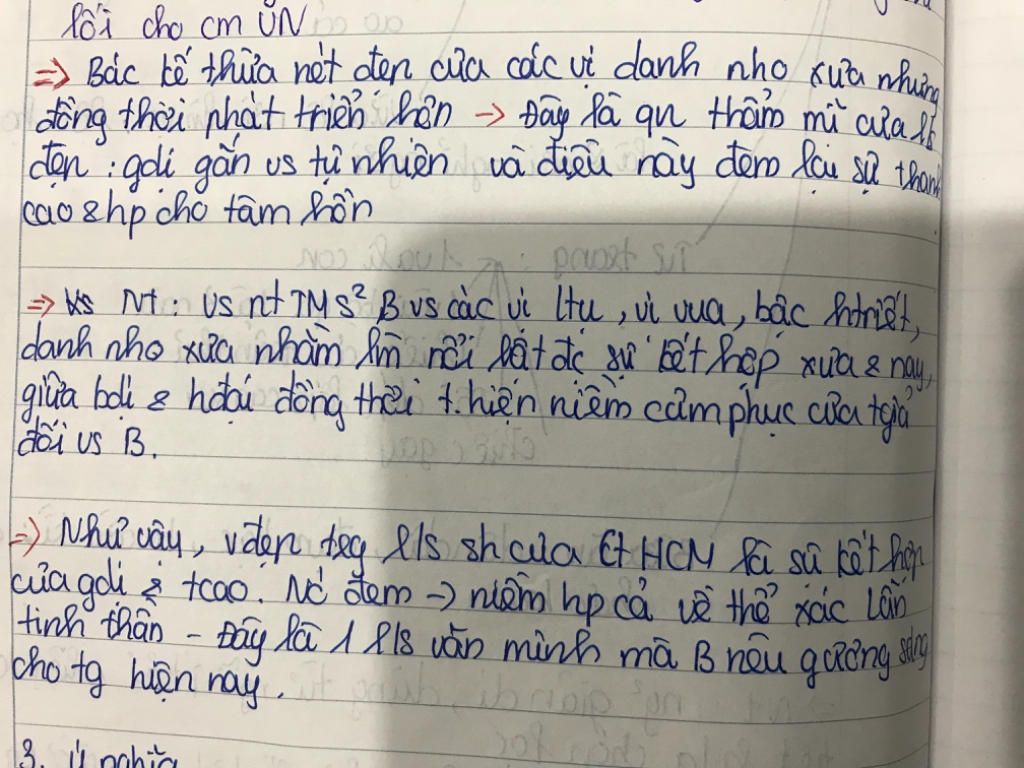 lối cho cm VN
=> Bác kế thừa nét đẹp của các vị danh nho xưa nhưng
đồng thời phát triển hơn -> Đây là qn thẩm mĩ của ls
đẹp : gdị gắn vs tự nhiên và điều này đem lại sự thanh
cao & hp cho tâm hồn
=> Vs Nt : vs nt TM S² B vs các vị ltụ, vị vua, bậc htriết,
danh nho xưa nhằm lm nổi bật đc sự kết hợp xưa & nay,
giữa bdị & hđại đồng thời t.hiện niềm cảm phục của tgiả
đối vs B.
=> Như vậy, vđẹp tcg lls sh của Ct HCM là sự kết hợp
của gdị & tcao. Nó đem -> niềm hp cả về thể xác lẫn
tinh thần - Đây là 1 lls văn minh mà B nêu gương sáng
cho tg hiện nay.
3. ý nghĩa